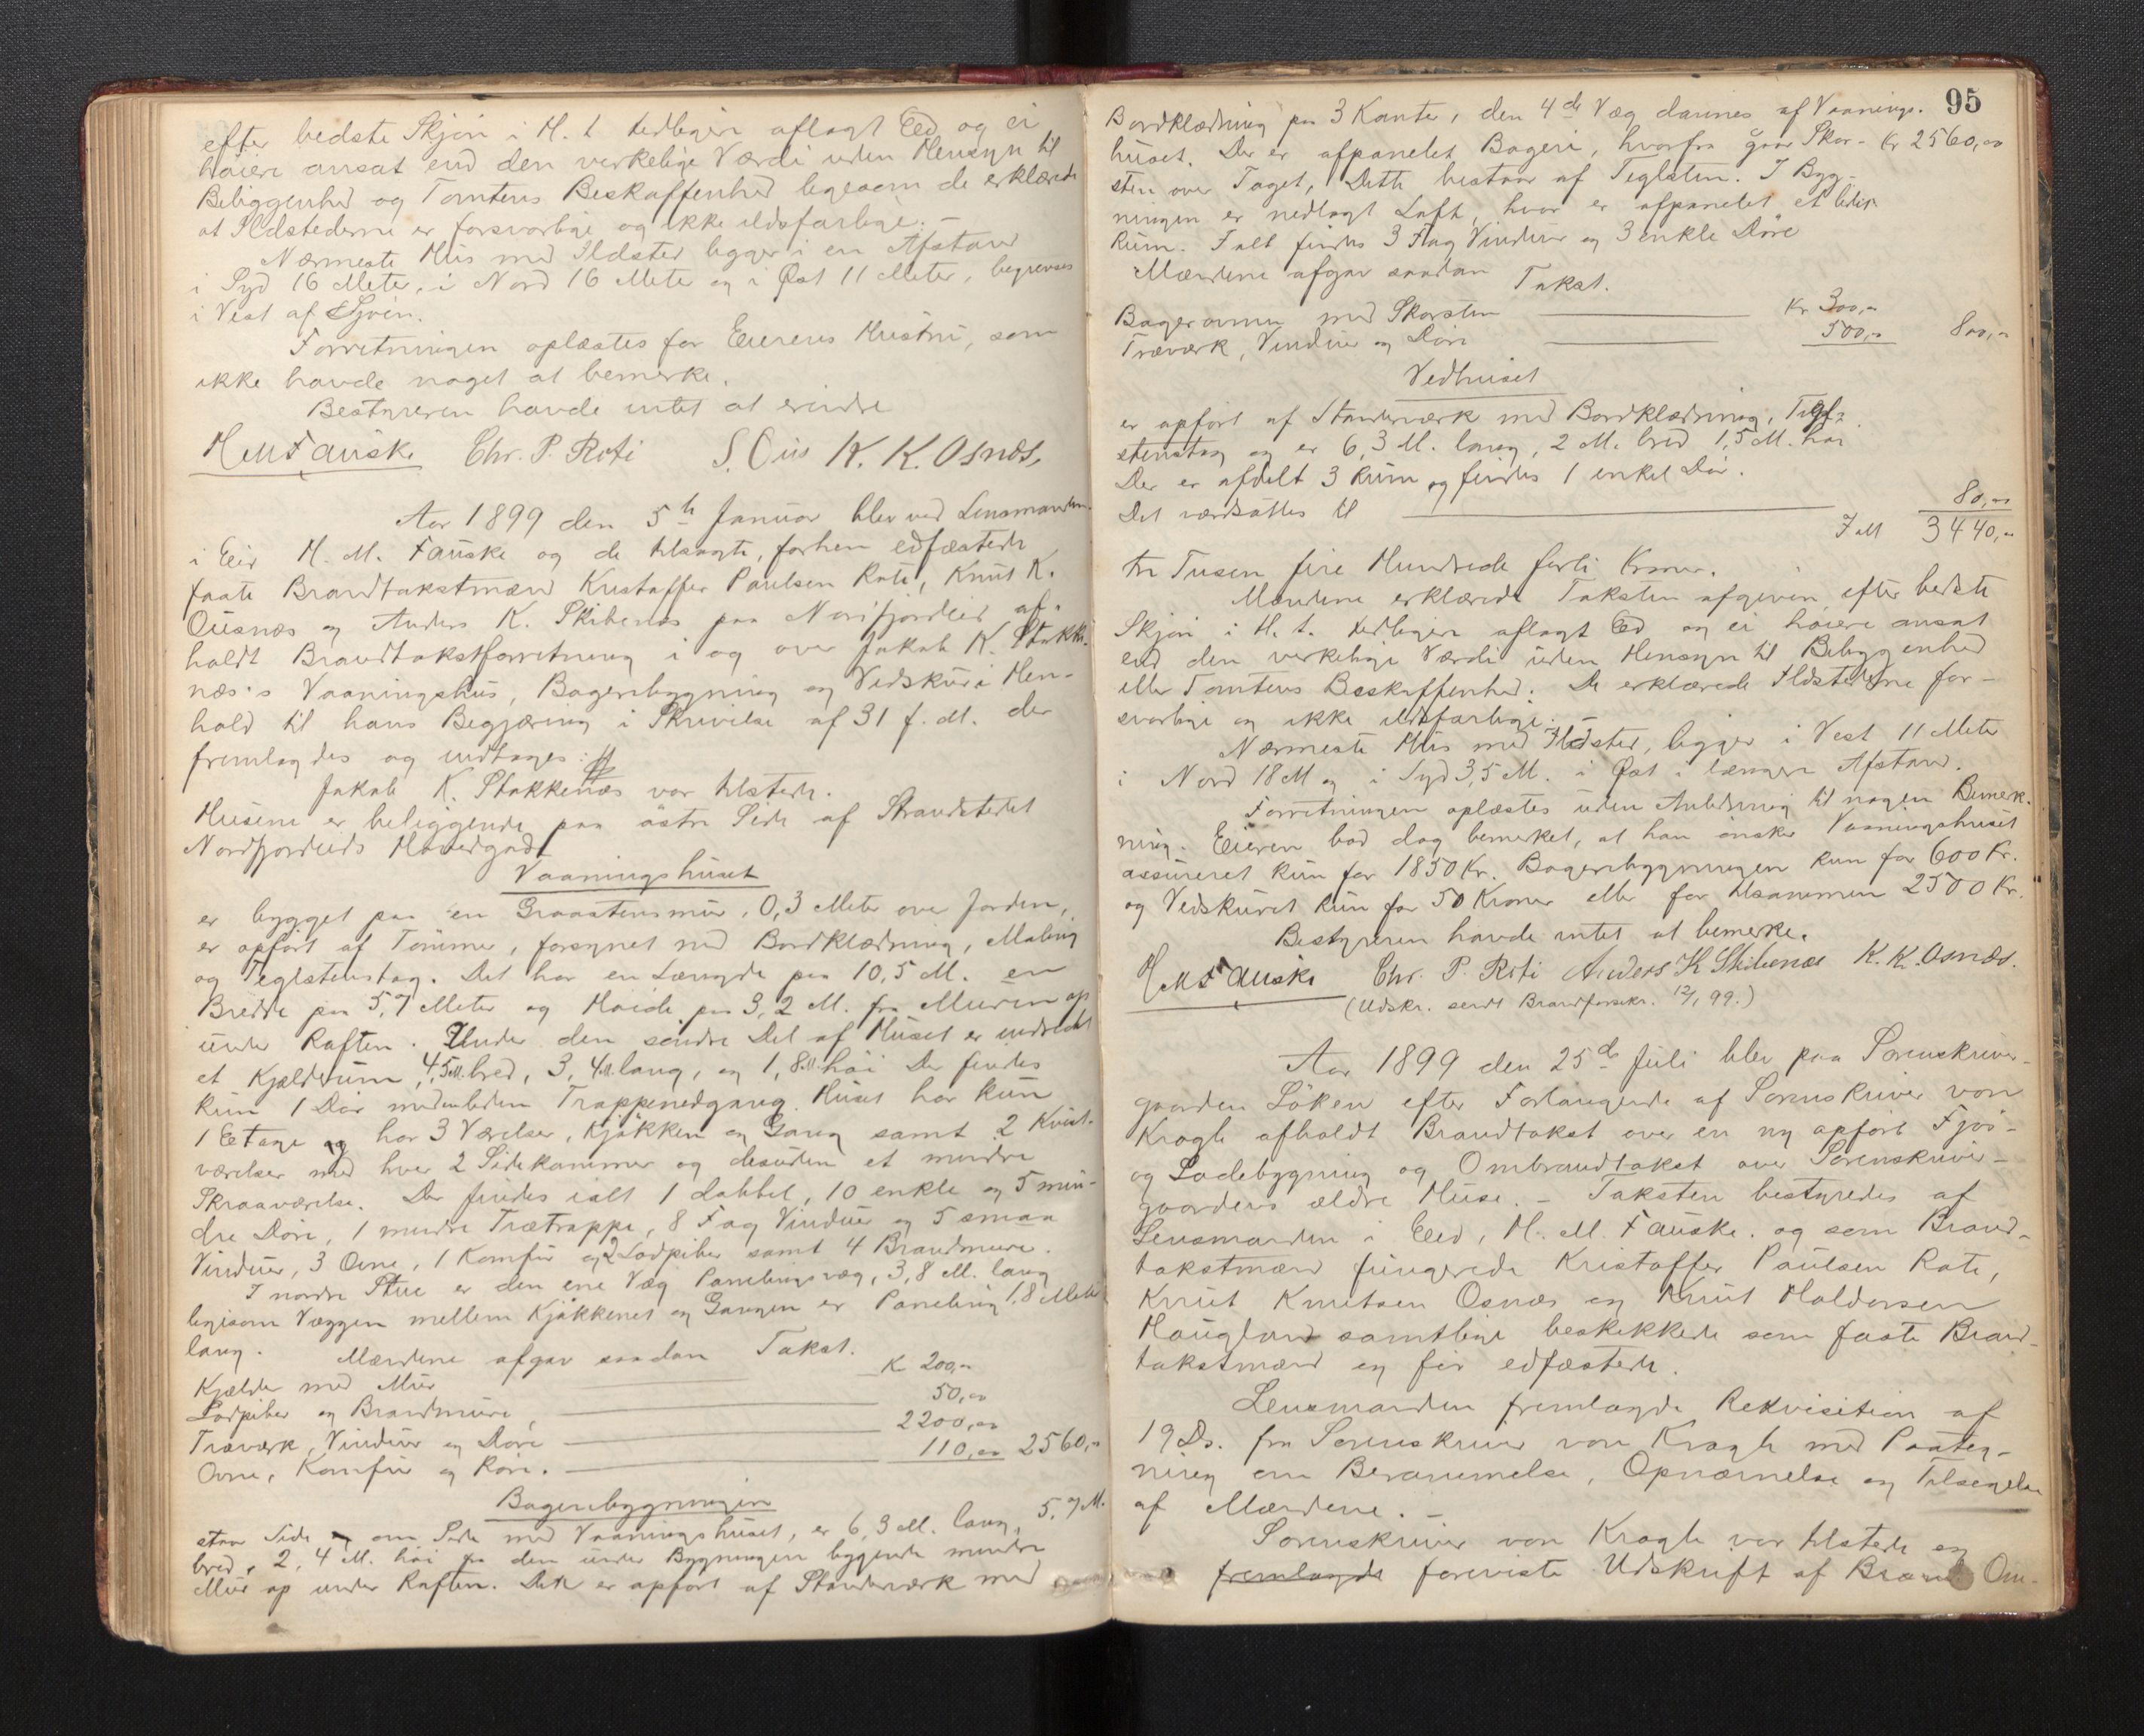 efter bedste Skjøn i H. t. tidligere aflagt Eed og ei
høiere ansat end den verkelige Værdi uden Hensyn til
Bebiggenhed og Tomtens Beskaffenhed ligesom de erklærede
at Ildstederne er forsvarlige og ikke ildsfarlige. –
Nærmeste Hus med Ildsted ligger i en Afstand
i Syd 16 Meter, i Nord 16 Meter og i Øst 11 Meter, begrænses
i Vest af Sjøen.
Forretningen oplæstes for Eierens Hustru, som
ikke havde noget at bemerke.
Bestyreren havde intet at erindre
H M Fauske Chr. P. Roti S. Ous K. K. Osnæs,
Aar 1899 den 5te Januar blev ved Lensmanden
i Eid H. M. Fauske og de tilsagte, forhen edfæstede
faste Brandtakstmænd Kristoffer Paulsen Roti, Knut K.
Ousnæs og Anders K. Skibenæs paa Nordfjordeid af-
holdt Brandtakstforretning i og over Jakob K. Stokke-
næs's Vaaningshus, Bageribygning og Vedskur i Hen-
hold til hans Begjæring i Skrivelse af 31 f. M. der
fremlagdes og indtages: #
Jakob K. Stokkenæs var tilstede.
Husene er beliggende paa østre Side af Strandstedet
Nordfjordeids Hovedgade
Vaaningshuset
er bygget paa en Graastensmur, 0,3 Meter over Jorden,
er opført af Tømmer, forsynet med Bordklædning, Maling
og Teglstenstag. Det har en Længde paa 10,5 M. en
Bredde paa 5,7 Meter og Høide paa 3,2 M. fra Muren op
under Raften. Under den søndre Del af Huset er indredet
et Kjælderum, 4,5 M. bred, 3,4 M. lang, og 1,8 M. høi Der findes
kun 1 Dør med  Trappenedgang. Huset har kun
1 Etage og har 3 Værelser, Kjøkken og Gang samt 2 Kvist-
værelser med hver 2 Sidekammer og desuden et mindre
Skraaværelse. Der findes ialt 1 dobbel, 10 enkle og 5 min-
dre Døre, 1 mindre Trætrappe, 8 Fag Vinduer og 5 smaa
Vinduer, 3 Ovne, 1 Komfur og 2 Lodpiber samt 4 Brandmure.
I nordre Stue er den ene Væg Panelingsvæg, 3,8 M. lang
ligesom Væggen mellem Kjøkkenet og Gangen er Paneling 1,8 Meter
lang. Mændene afgav saadan Takst.
Kjælder med Mur Kr 200,00
Lodpiber og Brandmure, 50,00
Træværk, Vinduer og Døre 2200,00
Ovne, Komfur og Rør. 110,00 2560,00
Bageribygningen
staar Side om Side med Vaaningshuset, er 6,3 M. lang, 5,7 M.
bred, 2,4 M. høi fra den under Bygningen liggende mindre
Mur op under Raften. Dette er opført af Standerværk med
95
Bordklædning paa 3 Kanter, den 4de Væg dannes af Vaanings-
huset. Der er afpanelet Bageri, hvorfra gaar Skor- Kr 2560,00
sten over Taget, Dette bestaar af Teglsten. I Byg-
ningen er nedlagt Loft, hvor er afpanelet et lidet
Rum. Ialt findes 3 Fag Vinduer og 3 enkle Døre
Mændene afgav saadan Takst.
Bagerovnen med Skorsten Kr 300,00
Træværk, Vinduer og Døre 500,00 800,00
Vedhuset
er opført af Standerværk med Bordklædning, Tegl-
stenstag og er 6,3 M. lang, 2 M. bred 1,5 M. høi
Der er afdelt 3 Rum og findes 1 enkel Dør.
Det værdsættes til 80,00
Ialt 3440,00
tre Tusen fire Hundrede førti Kroner.
Mændene erklærede Taksten afgiven efter bedste
Skjøn i H. t. tidligere aflagt Eed og ei høiere ansat
end den verkelige Værdi uden Hensyn til Bebyggenhed
eller Tomtens Beskaffenhed. De erklærede Ildstederne for-
svarlige og ikke ildsfarlige. –
Nærmeste Hus med Ildsted, ligger i Vest 11 Meter
i Nord 18 M og i Syd 3,5 M. i Øst i længere Afstand.
Forretningen oplæstes uden Anledning til nogen Bemerk-
ning. Eieren bad dog bemerket, at han ønsker Vaaningshuset
assureret kun for 1850 Kr. Bageribygningen kun for 600 Kr.
og Vedskuret kun for 50 Kroner eller for tilsammen 2500 Kr.
Bestyreren havde intet at bemerke.
H M Fauske Chr. P. Roti Anders K Skibenæs K. K. Osnæs.
(Udskr. sendt Brandforsikr. 12/1 99.)
Aar 1899 den 25de Juli blev paa Sorenskriver-
gaarden Løken efter Forlangende af Sorenskriver von
Krogh afholdt Brandtakst over en ny opført Fjøs-
og Ladebygning og Ombrandtakst over Sorenskriver-
gaardens ældre Huse. – Taksten bestyredes af
Lensmanden i Eed, H. M. Fauske. og som Brand-
takstmænd fungerede Kristoffer Paulsen Rote,
Knut Knutsen Osnæs og Knut Haldorsen
Haugland samtlige beskikkede som faste Brand-
takstmænd og før edfæstede.
Lensmanden fremlagde Rekvisition af
19 Ds. fra Sorenskriver von Krogh med Paateg-
ning om Berammelse, Opnævnelse og Tilsigelse
af Mændene.
Sorenskriver von Krogh var tilstede og
fremlagde foreviste Udskrift af Brand Om-